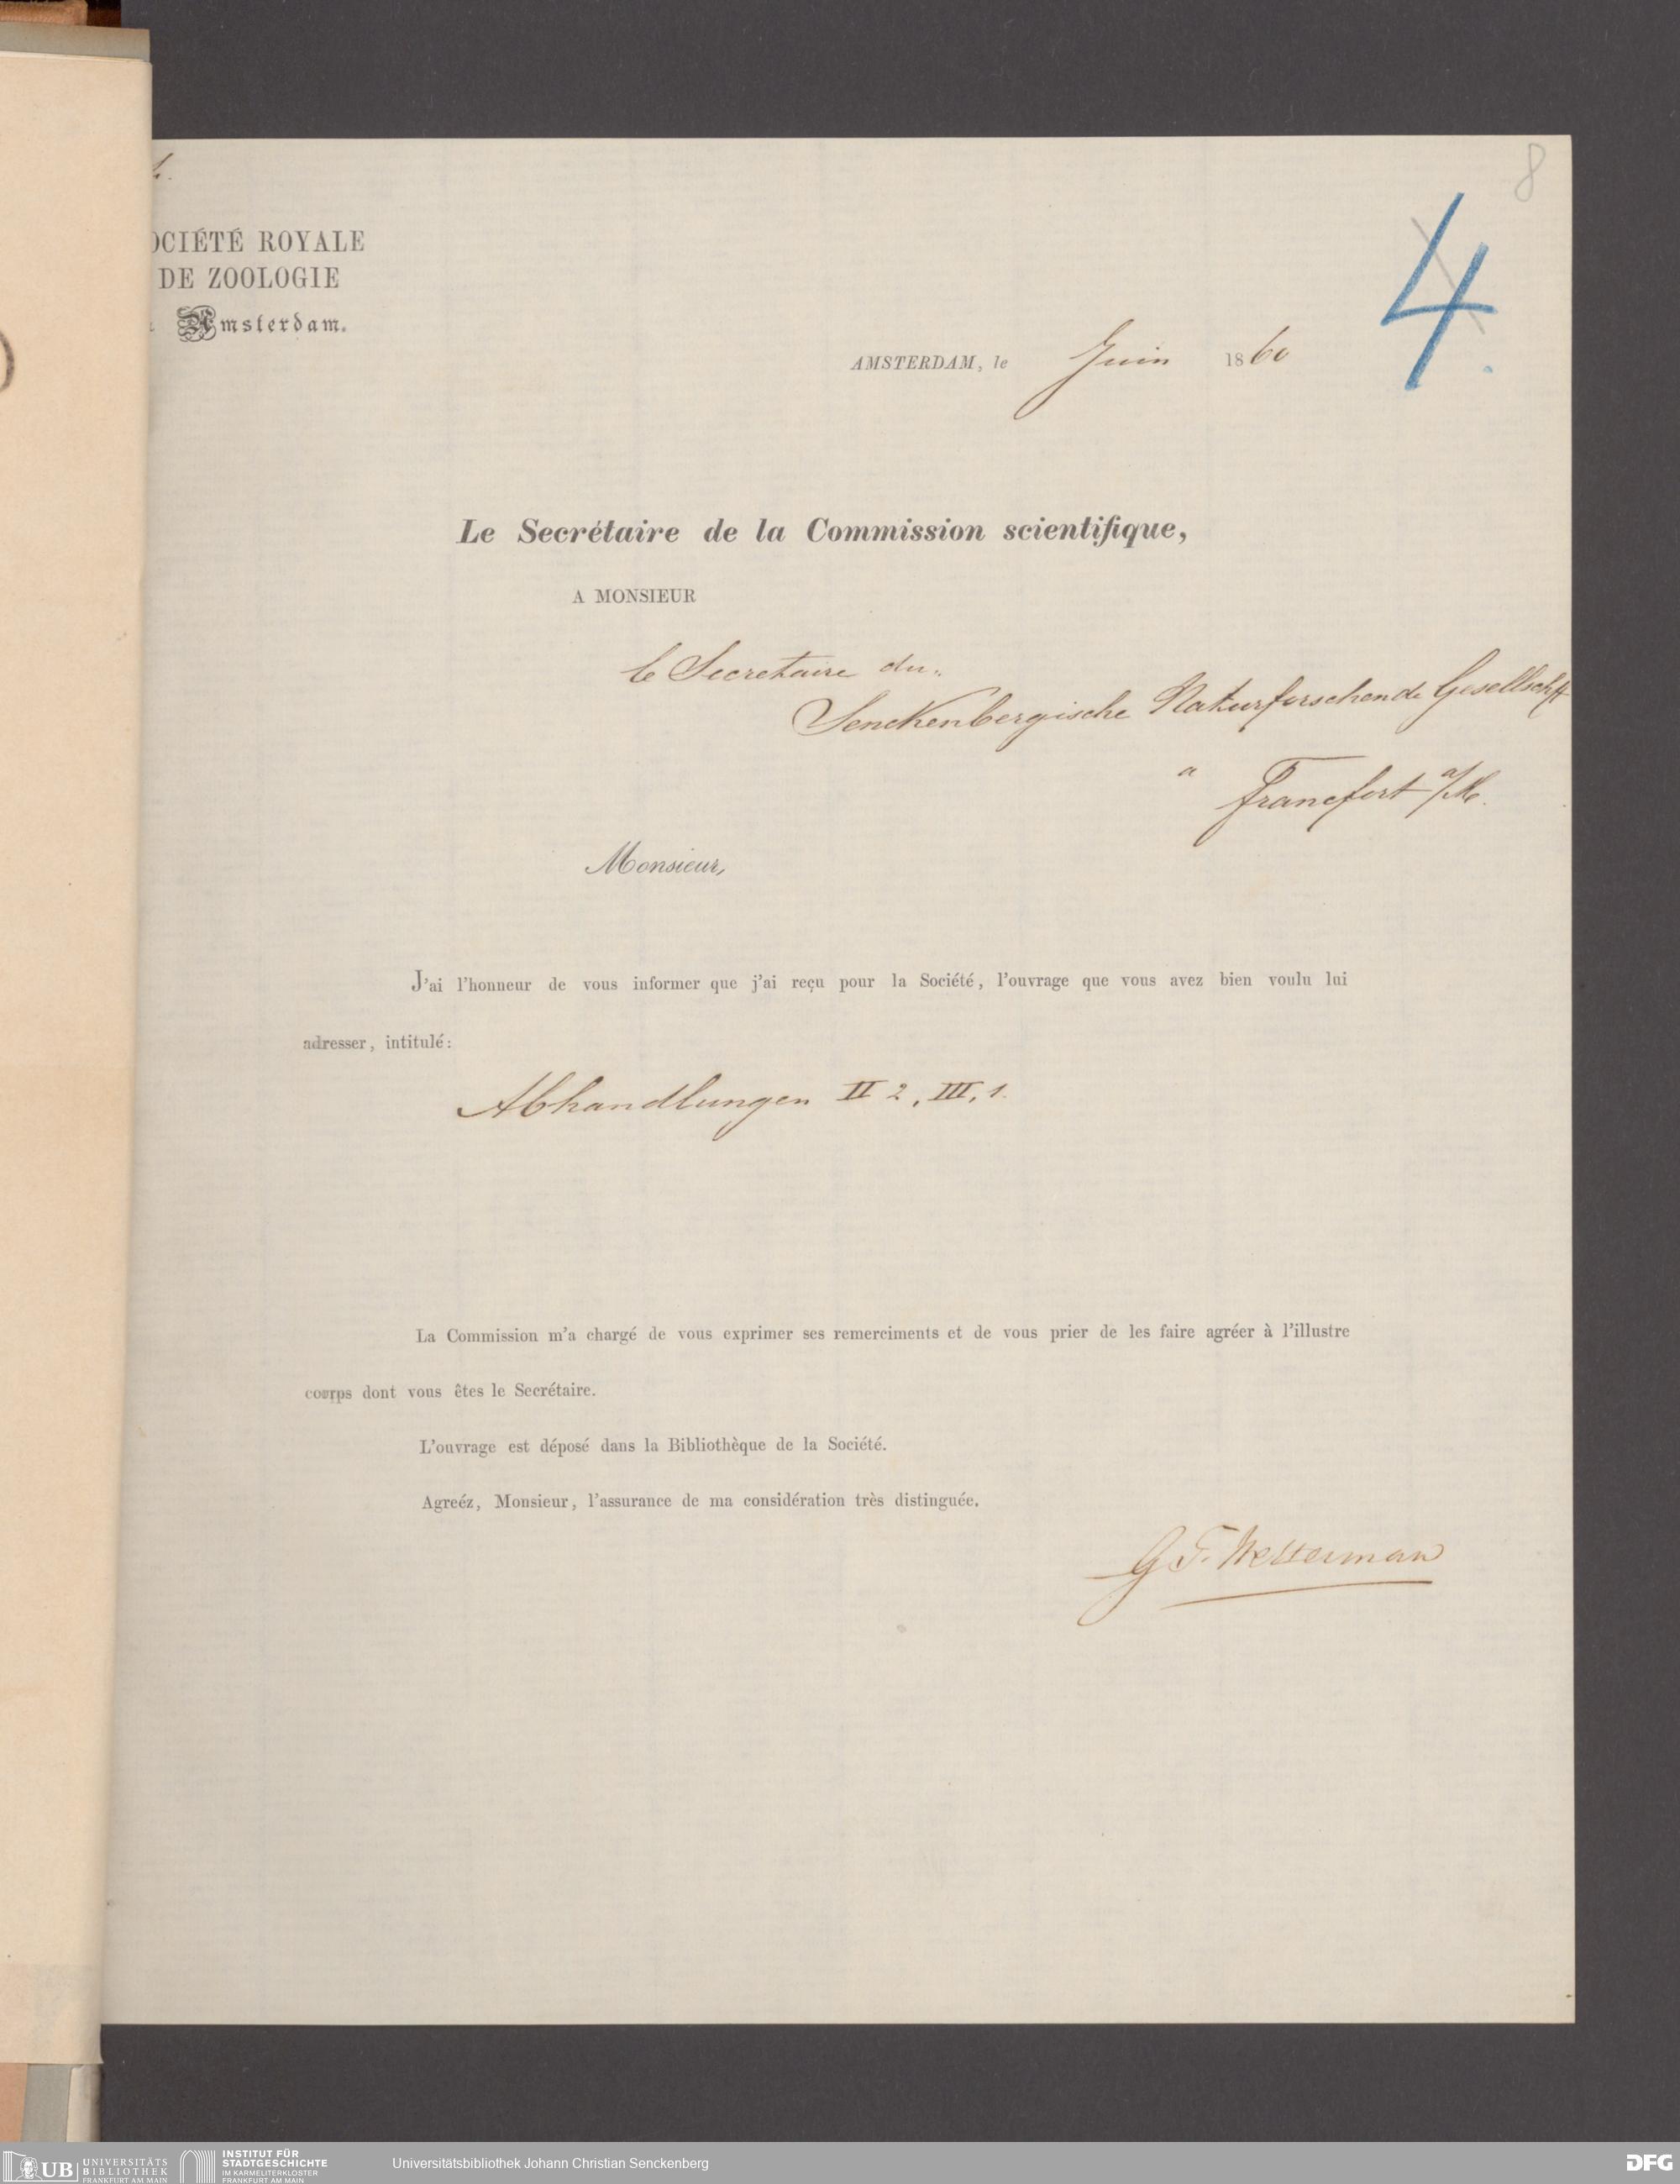 8
4.
OCIÉTÉ ROYALE
DE ZOOLOGIE
Amsterdam.
AMSTERDAM, le Juin 1860
Le Secrétaire de la Commission scientifique,
A MONSIEUR
le Secretaire du
Senckenbergische Naturforschende Gesellschft
a Francfort a/M.
Monsieur,
J'ai l'honneur de vous informer que j'ai reçu pour la Société, l'ouvrage que vous avez bien voulu lui
adresser, intitulé:
Abhandlungen II 2, III, 1.
La Commission m'a chargé de vous exprimer ses remerciments et de vous prier de les faire agréer à l'illustre
corps dont vous êtes le Secrétaire.
L'ouvrage est déposé dans la Bibliothèque de la Société.
Agreéz, Monsieur, l'assurance de ma considération très distinguée.
G F. Westerman
UB UNIVERSITÄTS
BIBLIOTHEK
FRANKFURT AM MAIN
INSTITUT FÜR
STADTGESCHICHTE
IM KARMELITERKLOSTER
FRANKFURT AM MAIN
Universitätsbibliothek Johann Christian Senckenberg
DFG